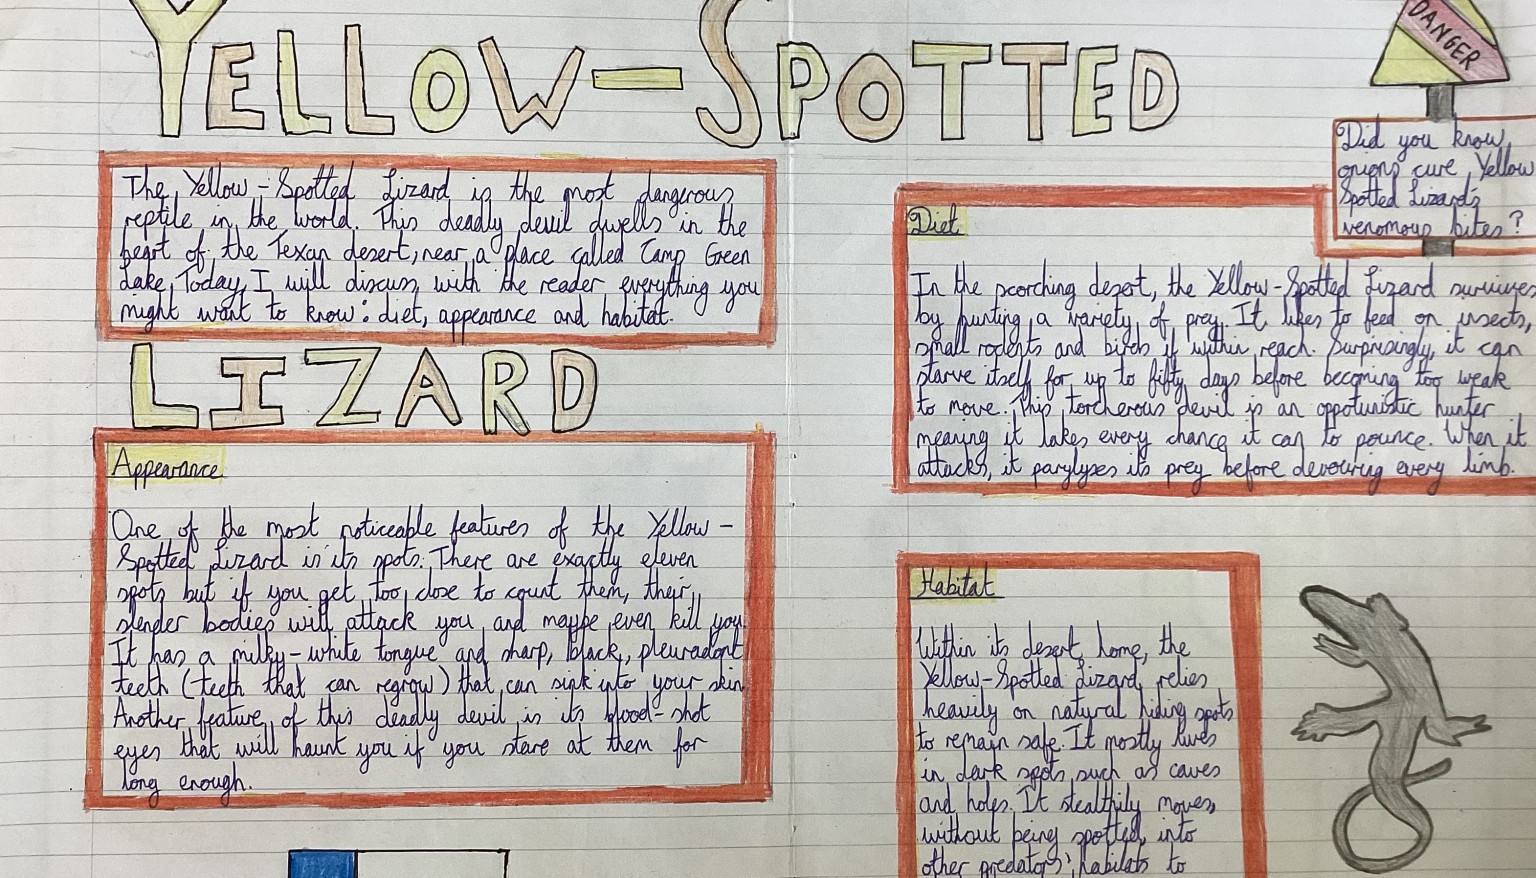 YELLOW-SPOTTED
The Yellow-Spotted Lizard is the most dangerous
reptile in the world. This deadly devil dwells in the
heart of the Texan desert, near a place called Camp Green
Lake. Today, I will discuss with the reader everything you
might want to know: diet, appearance and habitat.
LIZARD
Appearance
One of the most noticeable features of the Yellow-
Spotted Lizard is its spots. There are exactly eleven
spots but if you get too close to count them, their
slender bodies will attack you and maybe even kill you.
It has a milky-white tongue and sharp, black, pleuradont
teeth (teeth that can regrow) that can sink into your skin.
Another feature of this deadly devil is its blood-shot
eyes that will haunt you if you stare at them for
long enough.
DANGER
Did you know
onions cure Yellow
Spotted Lizard's
venomous bites?
Diet
In the scorching desert, the Yellow-Spotted Lizard survives
by hunting a variety of prey. It likes to feed on insects,
small rodents and birds if within reach. Surprisingly, it can
starve itself for up to fifty days before becoming too weak
to move. This torcherous devil is an oppotunistic hunter
meaning it takes every chance it can to pounce. When it
attacks, it parylyses its prey before devouring every limb.
Habitat
Within its desert home, the
Yellow-Spotted Lizard relies
heavily on natural hiding spots
to remain safe. It mostly lives
in dark spots such as caves
and holes. It stealthily moves,
without being spotted, into
other predators' habitats to